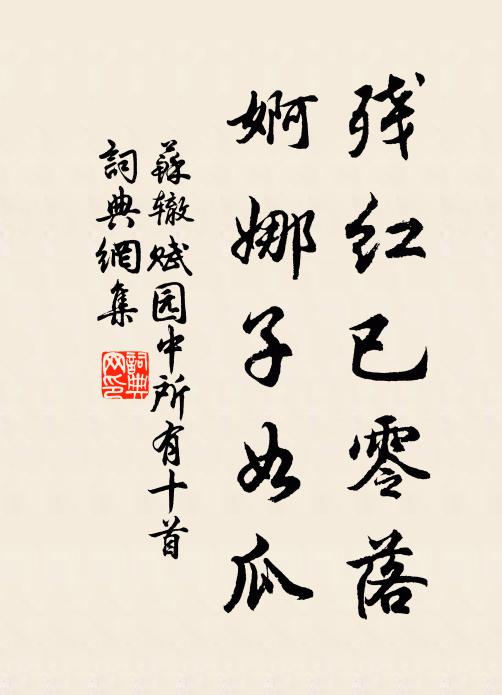 残红已零落
婀娜子如瓜
蘇辙赋园中所有十首
詞典網集
詞典网印